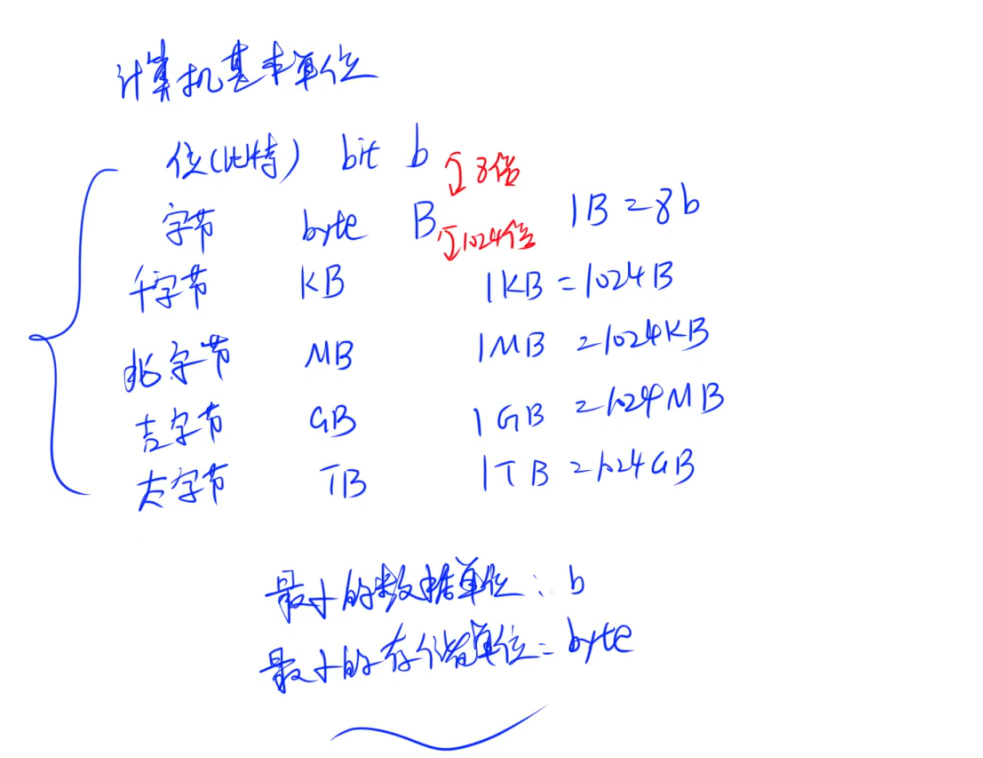 计算机基本单位
位(比特) bit b 8倍
字节 byte B 1024倍 1B=8b
千字节 KB 1KB=1024B
兆字节 MB 1MB=1024KB
吉字节 GB 1GB=1024MB
太字节 TB 1TB=1024GB
最小的数据单位: b
最小的存储单位: byte